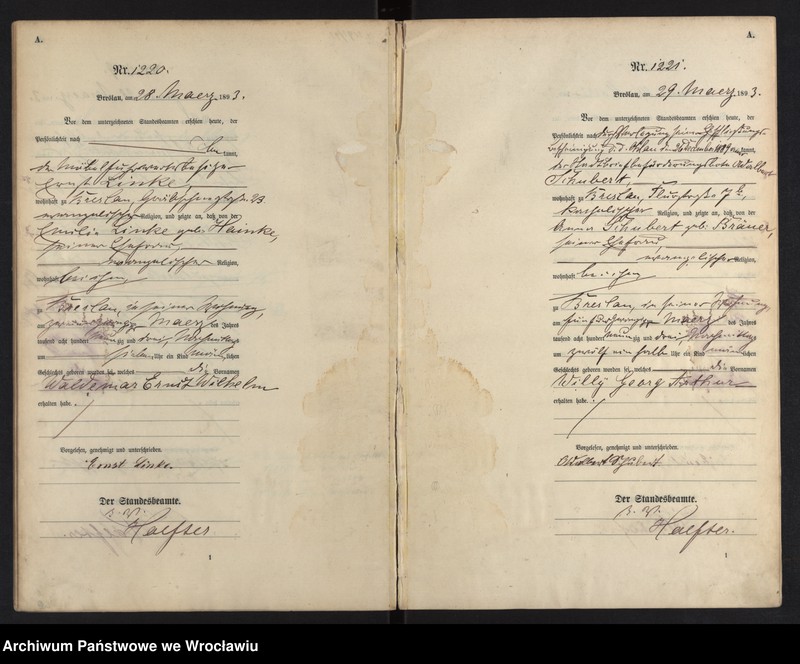 A.
Nr. 1220.
Breslau, am 28. Maerz 1893.
Vor dem unterzeichneten Standesbeamten erschien heute, der
Persönlichkeit nach
kannt,
der Möbelfuhrwerksbesitzer
Ernst Linke,
wohnhaft zu Breslau, 23
evangelischer Religion, und zeigte an, daß von der
Emilie Linke geb. Hainke,
seiner Ehefrau,
evangelischer Religion,
wohnhaft bei ihm,
zu Breslau, in seiner Wohnung,
am Maerz des Jahres
tausend acht hundert neunzig und drei, Nachmittags
um sieben Uhr ein Kind männlichen
Geschlechts geboren worden sei, welches die Vornamen
Waldemar Ernst Wilhelm
erhalten habe.
Vorgelesen, genehmigt und unterschrieben.
Ernst Linke.
Der Standesbeamte.
z. V.
Haefter.
1
A.
Nr. 1221.
Breslau, am 29. Maerz 1893.
Vor dem unterzeichneten Standesbeamten erschien heute, der
Persönlichkeit nach durch Vorlegung seiner Eheschließungs-
bescheinigung d. d. December 1889 kannt,
der Stadtbriefbeförderungsbote Adalbert
Schubert,
wohnhaft zu Breslau, Flurstraße
katholischer Religion, und zeigte an, daß von der
Anna Schubert geb. Bräuer,
seiner Ehefrau
evangelischer Religion,
wohnhaft bei ihm
zu Breslau, in seiner Wohnung
am fünfundzwanzigsten Maerz des Jahres
tausend acht hundert neunzig und drei, Nachmittags
um zwölf ein halb Uhr ein Kind männlichen
Geschlechts geboren worden sei, welches die Vornamen
Willy Georg Arthur
erhalten habe.
Vorgelesen, genehmigt und unterschrieben.
Adalbert Schubert
Der Standesbeamte.
z. V.
Haefter.
1
Archiwum Państwowe we Wrocławiu